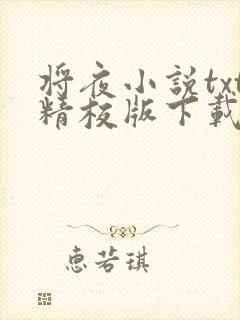 将夜小説txt
精校版下載
惠若琪